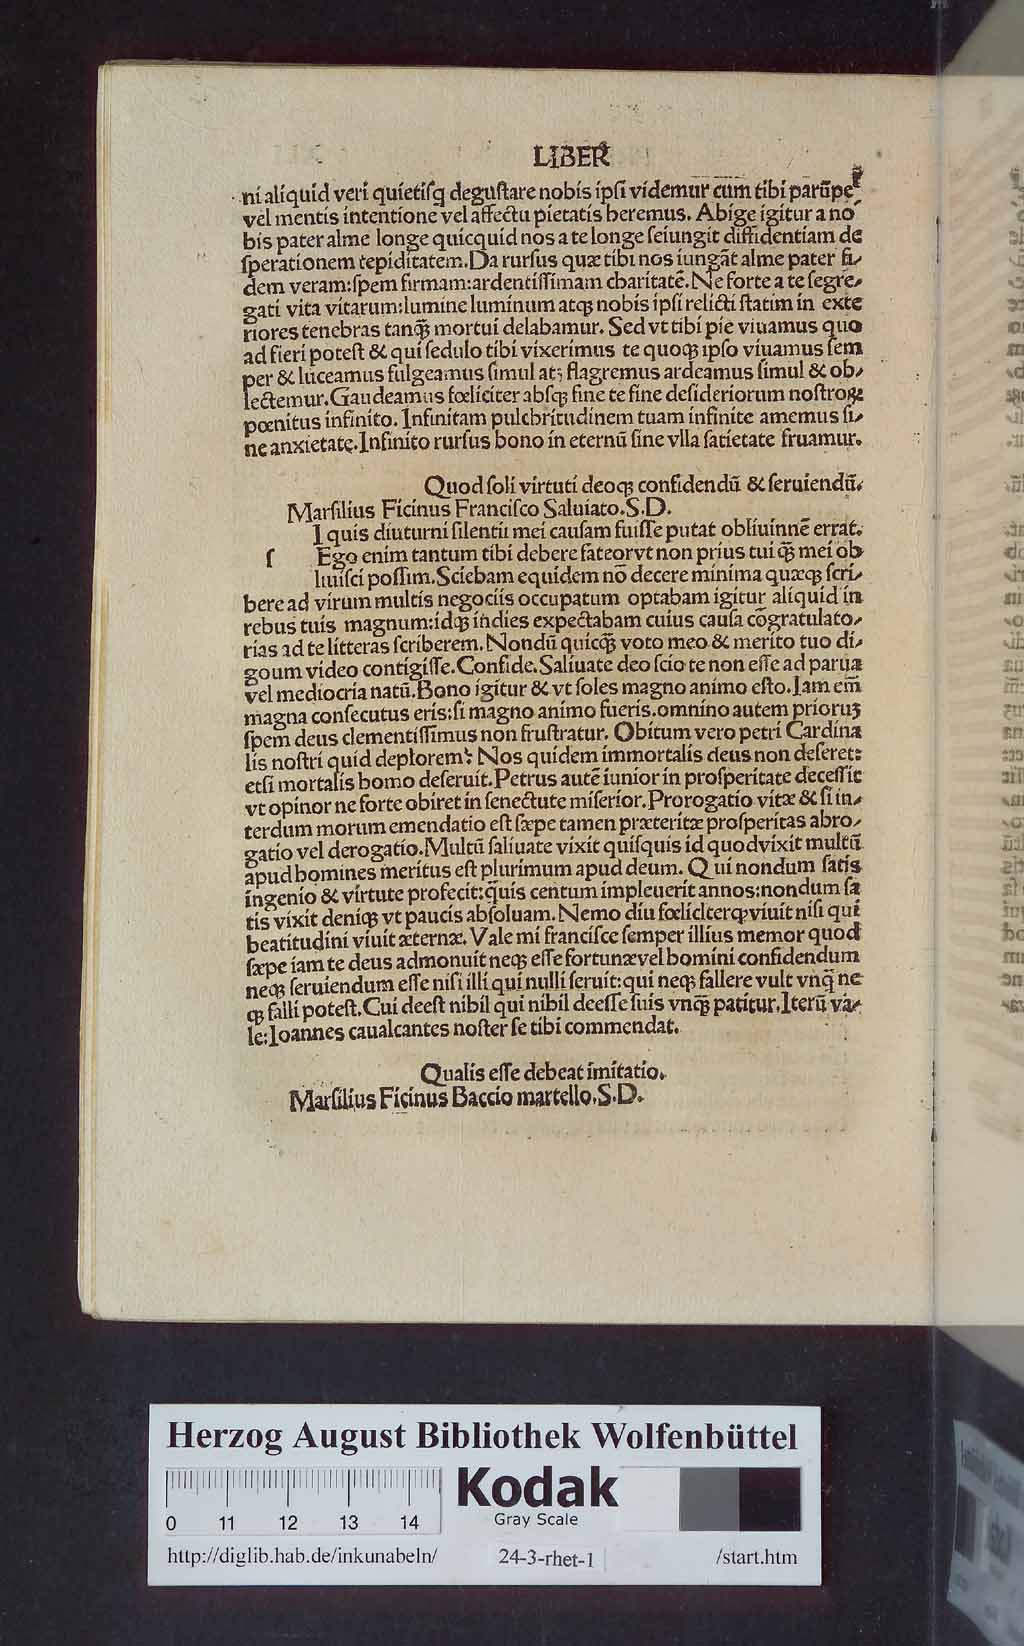 LIBER
ni aliquid veri quietisq; degustare nobis ipsi videmur cum tibi parūpe
vel mentis intentione vel affectu pietatis heremus. Abige igitur a no
bis pater alme longe quicquid nos a te longe seiungit diffidentiam de
sperationem tepiditatem. Da rursus quæ tibi nos iungāt alme pater fi-
dem veram:spem firmam:ardentissimam charitatē. Ne forte a te segre-
gati vita vitarum:lumine luminum atq; nobis ipsi relicti statim in exte
riores tenebras tanq̄ mortui delabamur. Sed vt tibi pie viuamus quo
ad fieri potest & qui sedulo tibi vixerimus te quoq; ipso viuamus sem
per & luceamus fulgeamus simul atq; flagremus ardeamus simul & ob-
lectemur. Gaudeamus fœliciter absq; fine te fine desideriorum nostroꝝ
pœnitus infinito. Infinitam pulchritudinem tuam infinite amemus si-
ne anxietate. Infinito rursus bono in eternū sine vlla satietate fruamur.
Quod soli virtuti deoq; confidendū & seruiendū.
Marsilius Ficinus Francisco Saluiato. S. D.
I quis diuturni silentii mei causam fuisse putat obliuinnē errat.
s Ego enim tantum tibi debere fateor vt non prius tui q̄ mei ob
liuisci possim. Sciebam equidem nō decere minima quæq; scri-
bere ad virum multis negociis occupatum optabam igitur aliquid in
rebus tuis magnum:idq; indies expectabam cuius causa cōgratulato-
rias ad te litteras scriberem. Nondū quicq̄ voto meo & merito tuo di-
goum video contigisse. Confide. Saliuate deo scio te non esse ad parua
vel mediocria natū. Bono igitur & vt soles magno animo esto. Iam em̄
magna consecutus eris:si magno animo fueris. omnino autem prioruꝫ
spem deus clementissimus non frustratur. Obitum vero petri Cardina
lis nostri quid deplorem? Nos quidem immortalis deus non deseret:
etsi mortalis homo deseruit. Petrus autē iunior in prosperitate decessit
vt opinor ne forte obiret in senectute miserior. Prorogatio vitæ & si in-
terdum morum emendatio est sæpe tamen præteritæ prosperitas abro-
gatio vel derogatio. Multū saliuate vixit quisquis id quod vixit multū
apud homines meritus est plurimum apud deum. Qui nondum satis
ingenio & virtute profecit:q̄uis centum impleuerit annos:nondum sa
tis vixit deniq; vt paucis absoluam. Nemo diu fœliclterq; viuit nisi qui
beatitudini viuit æternæ. Vale mi francisce semper illius memor quod
sæpe iam te deus admonuit neq; esse fortunæ vel homini confidendum
neq; seruiendum esse nisi illi qui nulli seruit:qui neq; fallere vult vnq̄ ne
q; falli potest. Cui deest nihil qui nihil deesse suis vnq̄ patitur. Iterū va-
le:Ioannes caualcantes noster se tibi commendat.
Qualis esse debeat imitatio.
Marsilius Ficinus Baccio martello. S. D.
Herzog August Bibliothek Wolfenbüttel
Kodak
Gray Scale
0 11 12 13 14
http://diglib.hab.de/inkunabeln/ 24-3-rhet-1 /start.htm